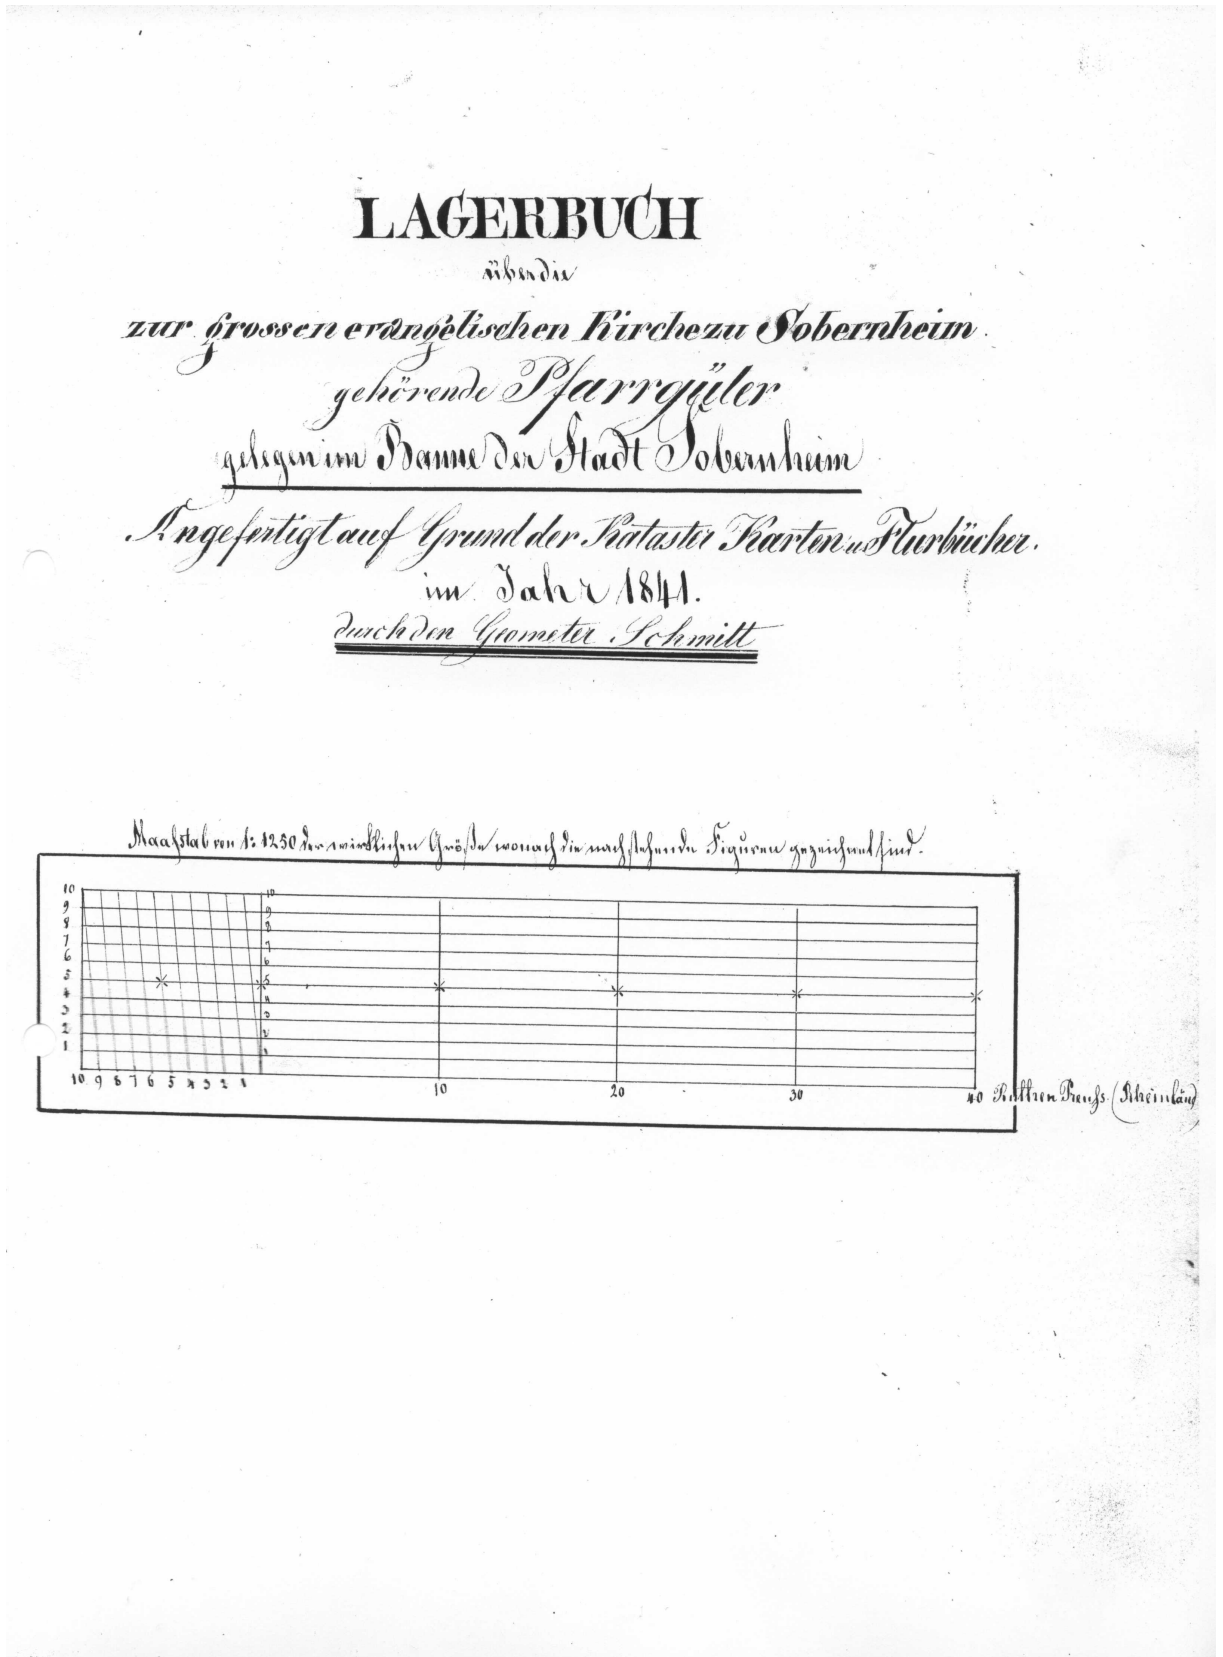 LAGERBUCH
über die
zur grossen evangelischen Kirche zu Sobernheim.
gehörende Pfarrgüter
gelegen im Banne der Stadt Sobernheim
Angefertigt auf Grund der Kataster Karten u. Flurbücher.
im Jahr 1841.
durch den Geometer Schmitt
Maaßstab von 1:1250 der wirklichen Größe wonach die nachstehende Figuren gezeichnet sind.
10 10
9 9
8 8
7 7
6 6
5 5
4 4
3 3
2 2
1 1
10 9 8 7 6 5 4 3 2 1 10 20 30 40 Ruthen Preuß. (Rheinländ)